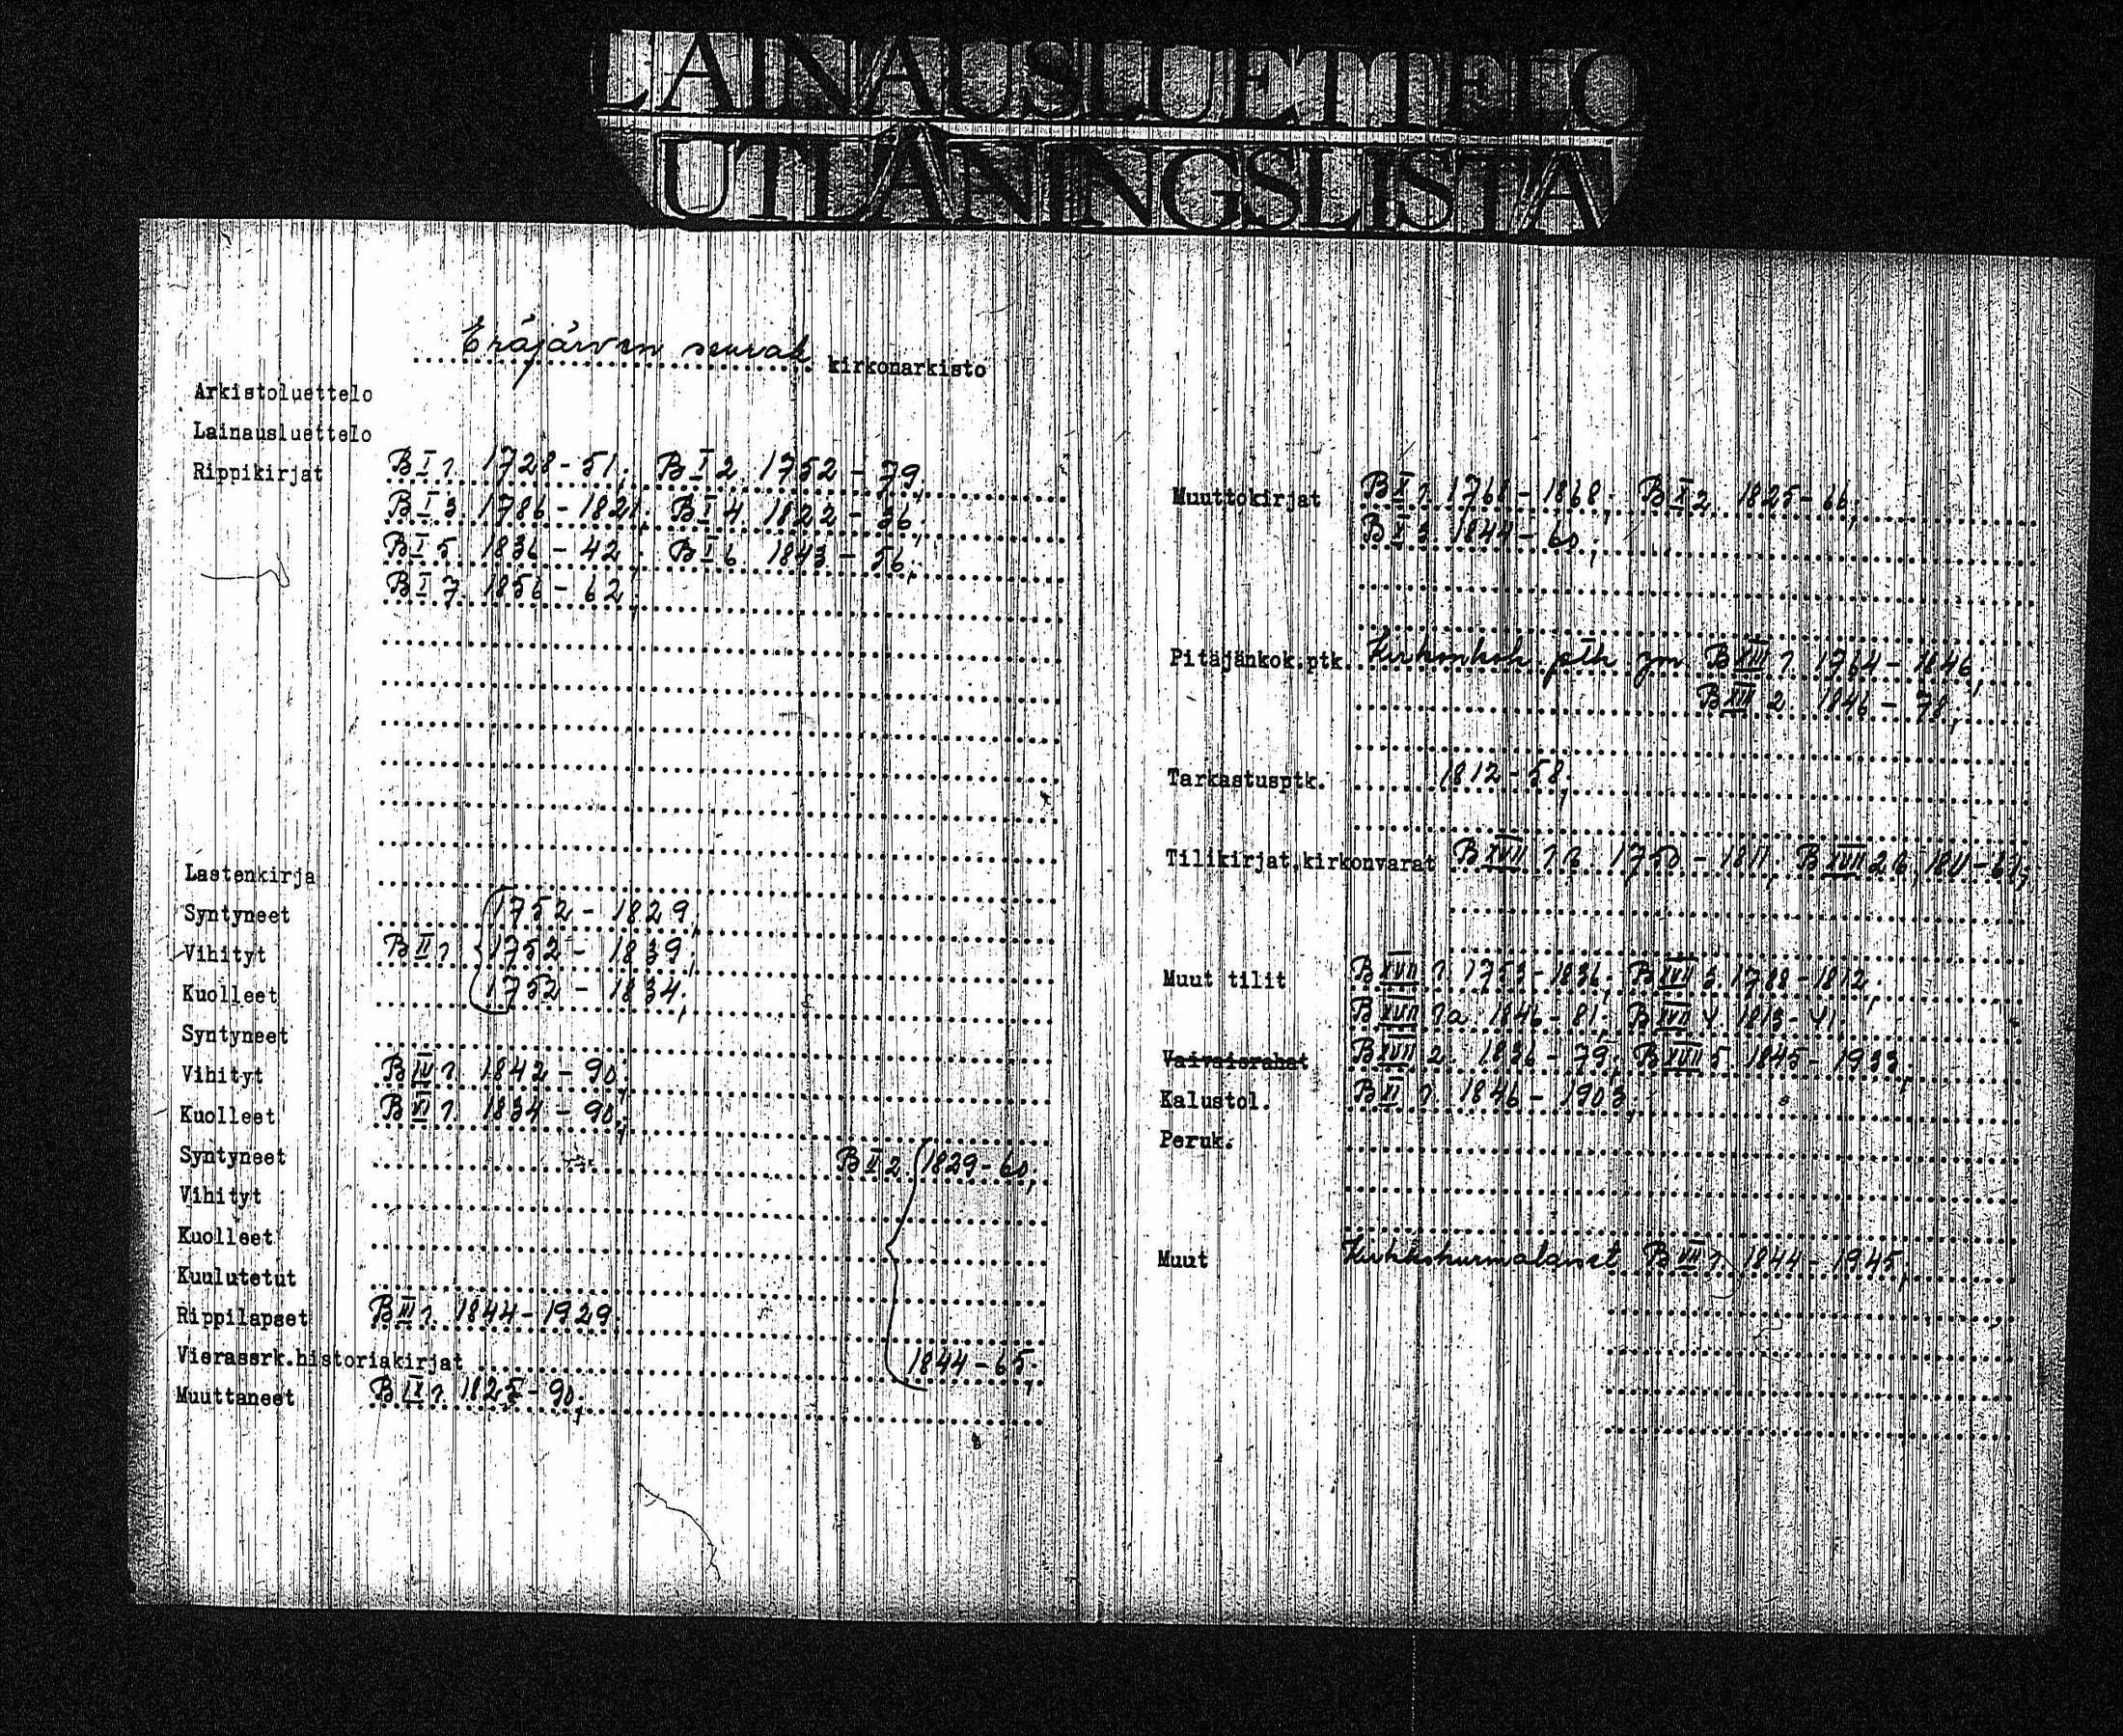 LAINAUSLUETTELO
UTLÅNINGSLISTA
Eräjärven seurak. kirkonarkisto
Arkistoluettelo
Lainausluettelo
Rippikirjat B I 1. 1728-51; B I 2. 1752-79;
B I 3. 1786-1821; B I 4. 1822-36;
B I 5. 1836-42; B I 6. 1843-56;
B I 7. 1856-62;
Lastenkirja
Syntyneet 1752-1829;
Vihityt B II 1. 1752-1839;
Kuolleet 1752-1834;
Syntyneet
Vihityt B IV 1. 1842-90;
Kuolleet B VI 1. 1834-90;
Syntyneet B II 2. 1829-60;
Vihityt
Kuolleet
Kuulutetut
Rippilapset B III 1. 1844-1929.
Vierassrk.historiakirjat 1844-65;
Muuttaneet B IX 1. 1825-90;
Muuttokirjat B X 1. 1768-1868; B X 2. 1825-66;
B X 3. 1844-60;
Pitäjänkok.ptk. Kirkonkok. ptk ym B XIII 1. 1764-1846;
B XIII 2. 1846-78;
Tarkastusptk. 1812-58;
Tilikirjat,kirkonvarat B XVII 1 b. 1750-1811; B XVII 2 b. 1811-61;
Muut tilit B XVII 1. 1753-1836; B XVII 3. 1788-1812;
B XVII 1a. 1846-81; B XVII 4. 1813-41;
Vaivaisrahat B XVII 2. 1836-79; B XVII 5. 1845-1933;
Kalustol. B XI 1. 1846-1903;
Peruk.
Muut B VII 1. 1844-1945;